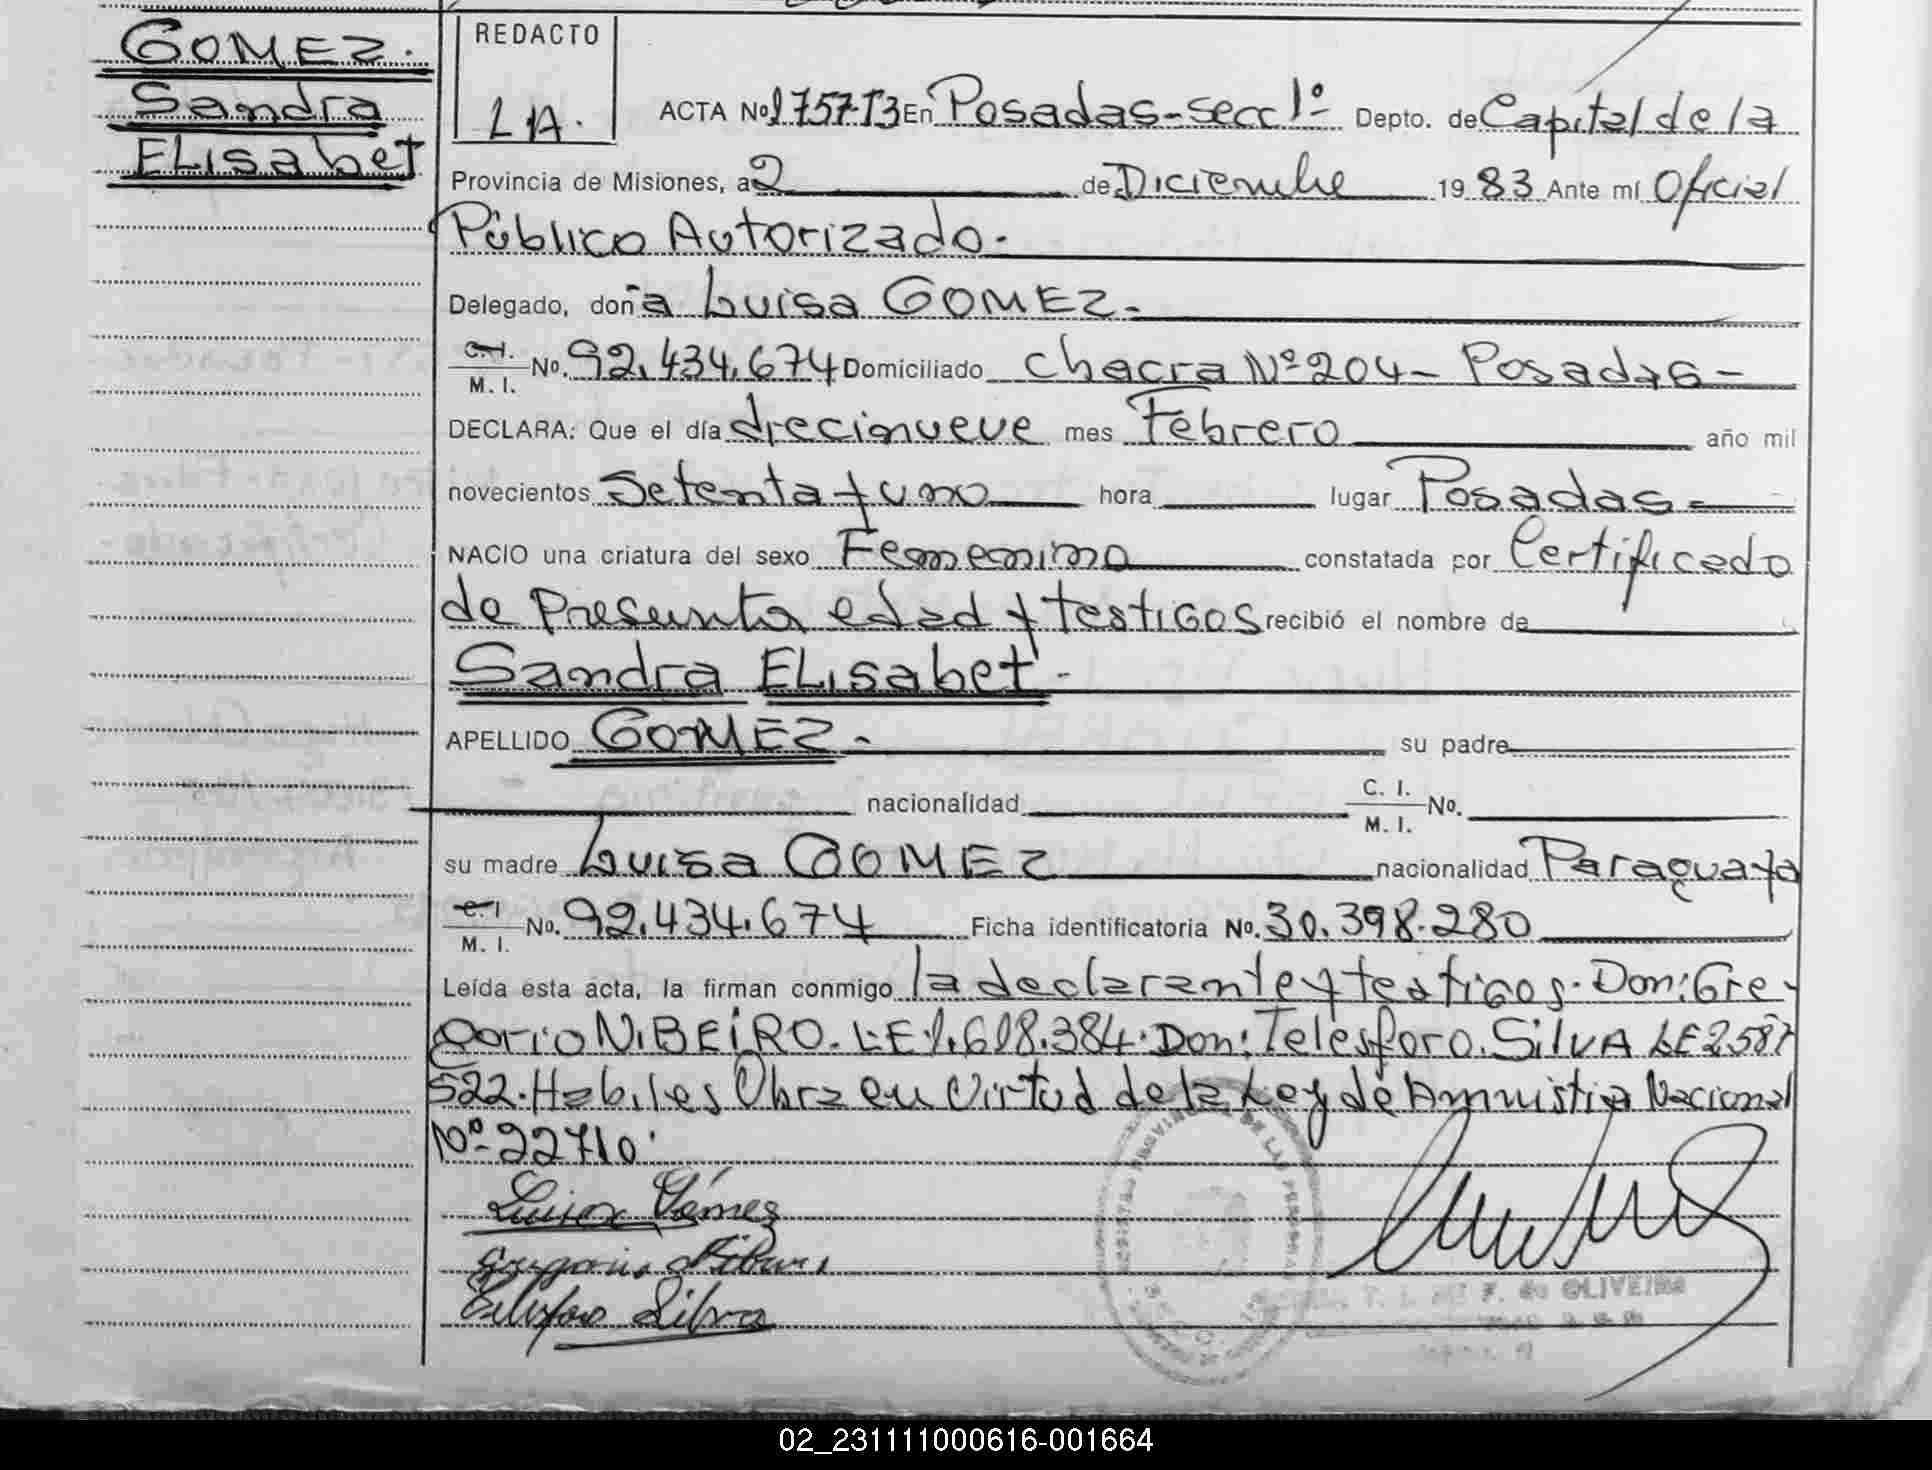 GOMEZ.
Sandra
ELisabet
REDACTO
LA.
ACTA No 1757T3 En Posadas-secc 1º Depto. de Capital de la
Provincia de Misiones, a 2 de Diciembre 1983 Ante mí Oficial
Público Autorizado.
Delegado, doña Luisa GOMEZ.
C.I. M. I. No. 92.434.674 Domiciliado Chacra Nº 204- Posadas-
DECLARA: Que el día diecinueve mes Febrero año mil
novecientos Setenta y uno hora lugar Posadas
NACIO una criatura del sexo Femenino constatada por Certificado
de Presunta edad y testigos recibió el nombre de
Sandra ELisabet.-
APELLIDO GOMEZ.- su padre
nacionalidad C. I. M. I. No.
su madre Luisa GOMEZ nacionalidad Paraguaya
C.I M. I. No. 92.434.674 Ficha identificatoria No. 30.398.280
Leída esta acta, la firman conmigo la declarante y testigos. Don: Gre-
gorio N. BEiRO. L.E 1.618.384. Don: Telesforo. SilvA LE 2587
522. Habiles Obra en Virtud de la Ley de Amnistia Nacional
Nº 22710.
Luisa Gómez
Gregorio
Telesforo Silva
OLIVEIRA
02_231111000616-001664